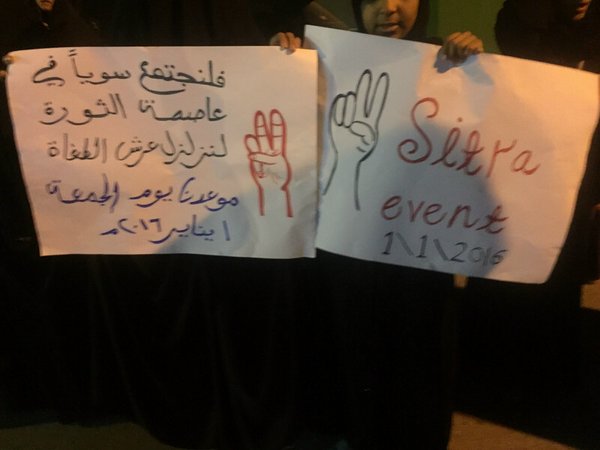 فلنجتمع سوياً في
عاصمة الثورة
لنزلزل عرش الطغاة
موعدنا يوم الجمعة
١ يناير ٢٠١٦م
Sitra
event
1\1\2016